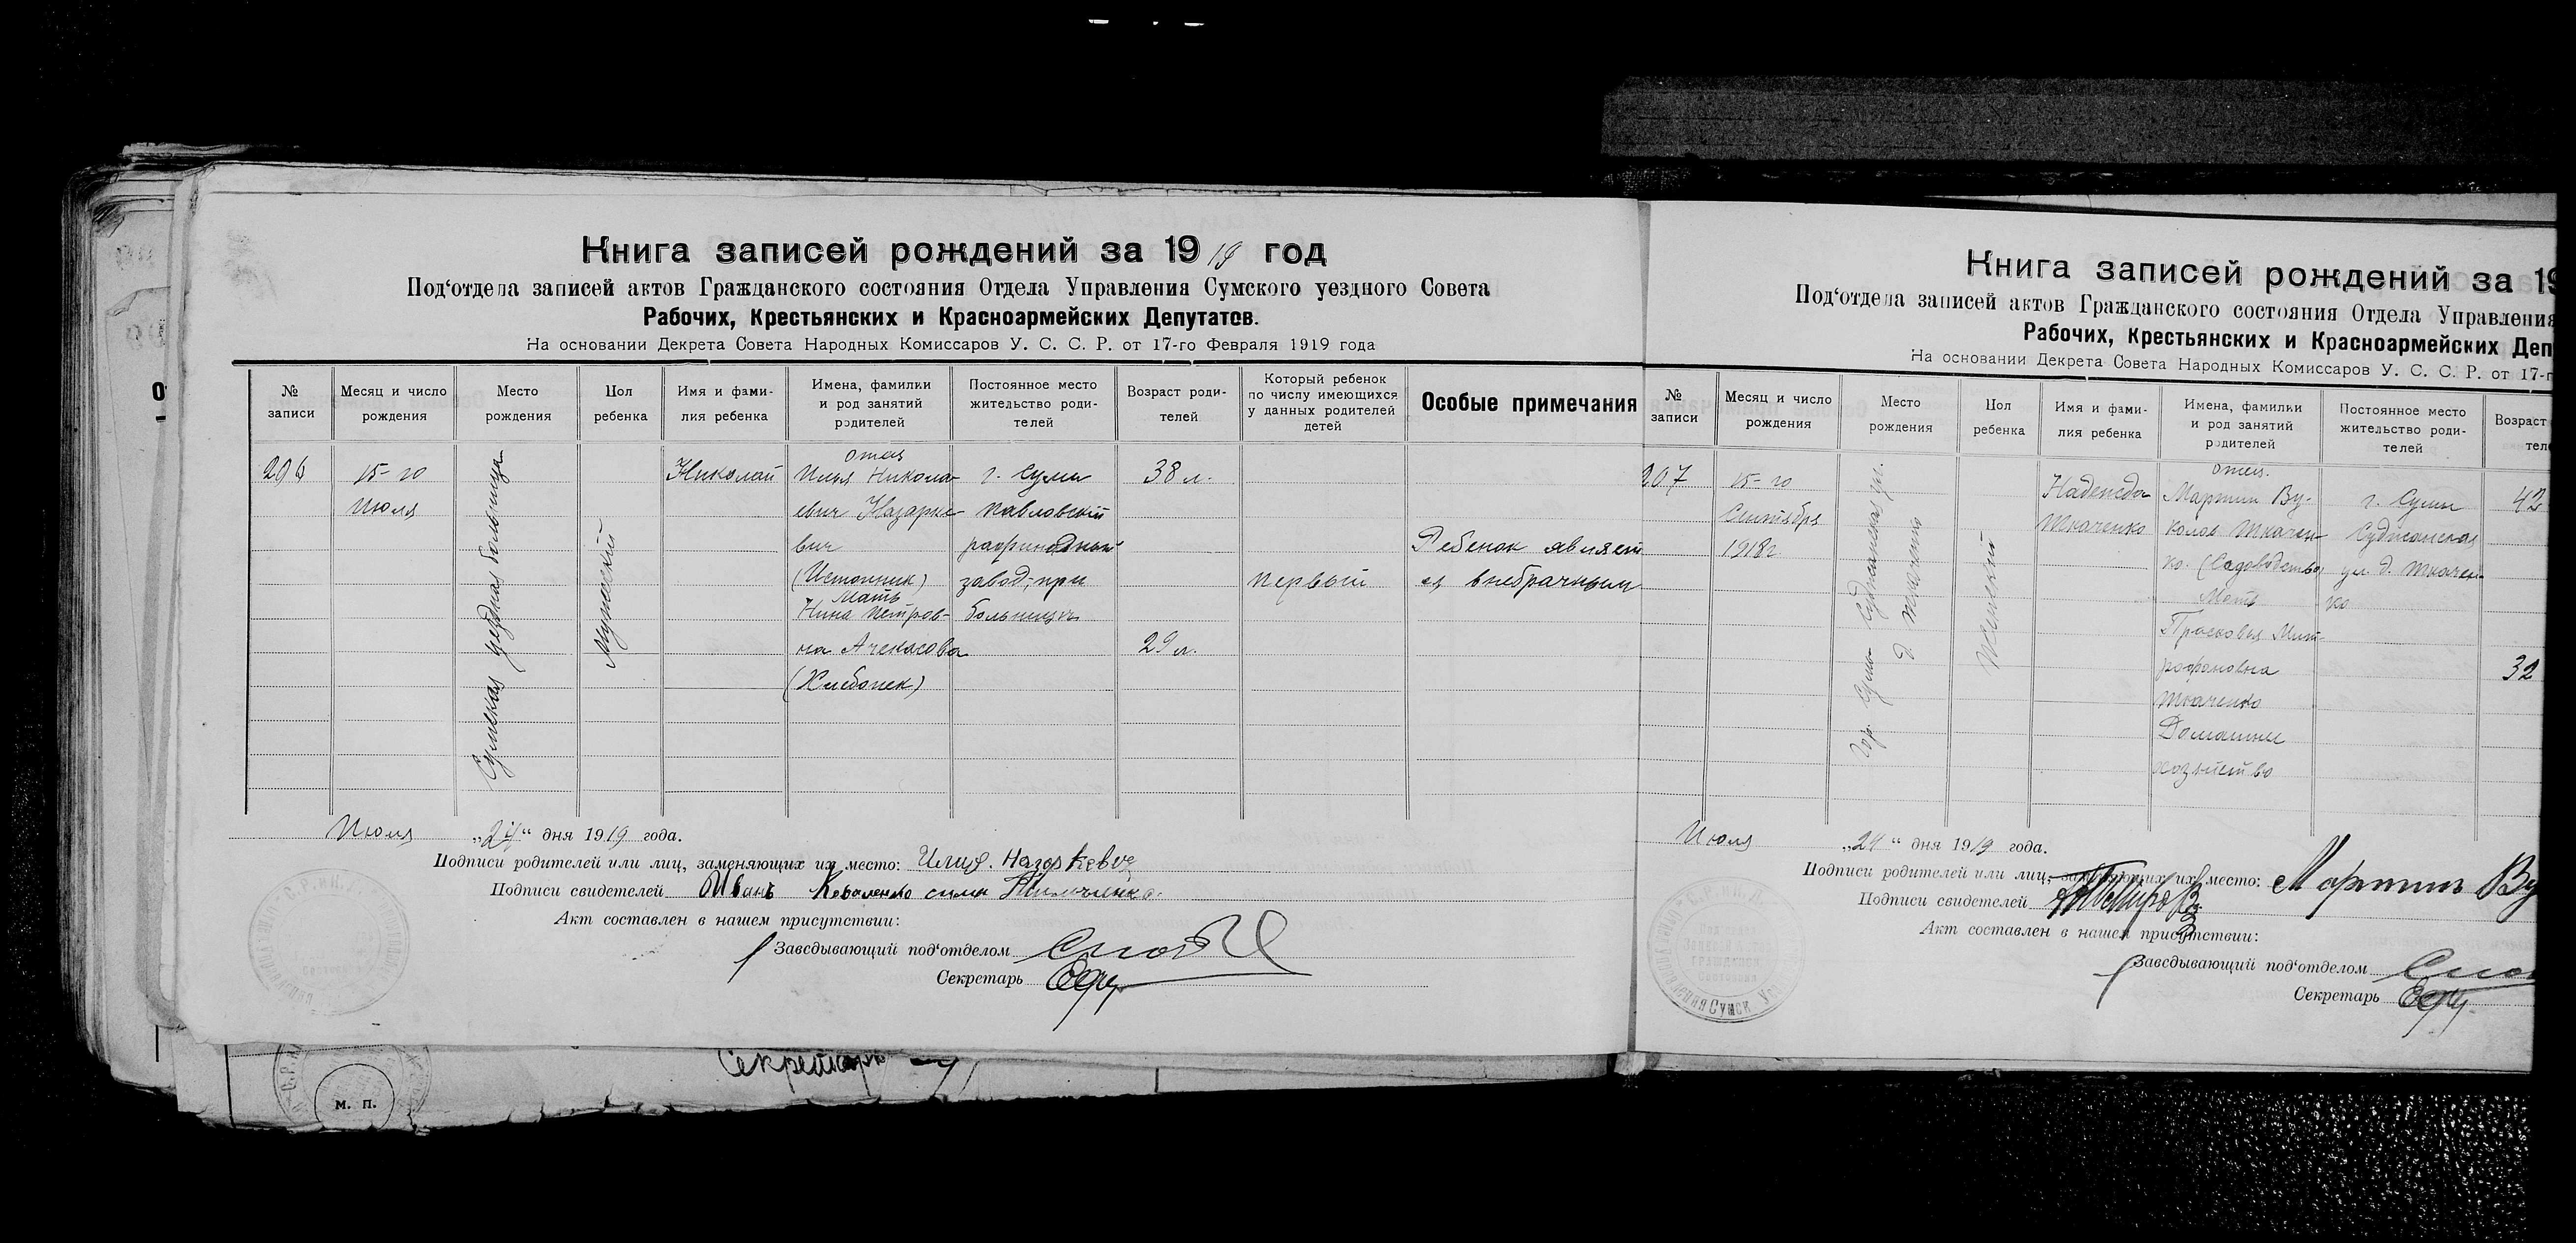 Книга записей рождений за 1919 год
Под‘отдела записей актов Гражданского состояния Отдела Управления Сумского уездного Совета
Рабочих, Крестьянских и Красноармейских Депутатов.
На основании Декрета Совета Народных Комиссаров У. С. С. Р. от 17-го Февраля 1919 года
№ записи
Месяц и число рождения
Место рождения
Пол ребенка
Имя и фами-
лия ребенка
Имена, фамилии
и род занятий
родителей
Постоянное место
жительство роди-
телей
Возраст роди-
телей
Который ребенок
по числу имеющихся
у данных родителей
детей
Особые примечания
206
15-го
Июля
Сумская уездная больница
Мужеский
Николай
отец
Илья Никола-
евич Назарке-
вич
(Истопник)
Мать
Нина Петров-
на Ачкасова
(Хлебопек)
г. Сумы
Павловский
рафинадный
завод, при
больнице
38 л.
29 л.
первый
Ребенок являет
ся внебрачным
Июля „24“ дня 1919 года.
Подписи родителей или лиц, заменяющих их место: Илия. Назаркевич
Подписи свидетелей Иванъ Коваленко
Акт составлен в нашем присутствии:
Заведывающий под‘отделом
Секретарь
Секретарь
м. п.
Книга записей рождений за 19
Под‘отдела записей актов Гражданского состояния Отдела Управления
Рабочих, Крестьянских и Красноармейских Деп
На основании Декрета Совета Народных Комиссаров У. С. С. Р. от 17-г
№ записи
Месяц и число рождения
Место рождения
Пол ребенка
Имя и фами-
лия ребенка
Имена, фамилии
и род занятий
родителей
Постоянное место
жительство роди-
телей
Возраст
тел
207
15-го
Сентября
1918 г
Гор. Сумы Суджанская ул.
д. Ткаченко
Женский
Надежда
Ткаченко
отец.
Мартин Ву-
колов Ткачен-
ко. (Садоводство)
Мать
Прасковья Мит-
рофановна
Ткаченко
Домашнее
хозяйство
г. Сумы
Суджанская
ул. д. Ткачен-
ко
42
32
Июля „24“ дня 1919 года.
Подписи родителей или лиц, заменяющих их место: Мартин Ву
Подписи свидетелей
Акт составлен в нашем присутствии:
Заведывающий под‘отделом
Секретарь